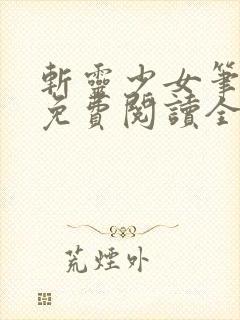 斬靈少女筆
免費閱讀全
荒煙外